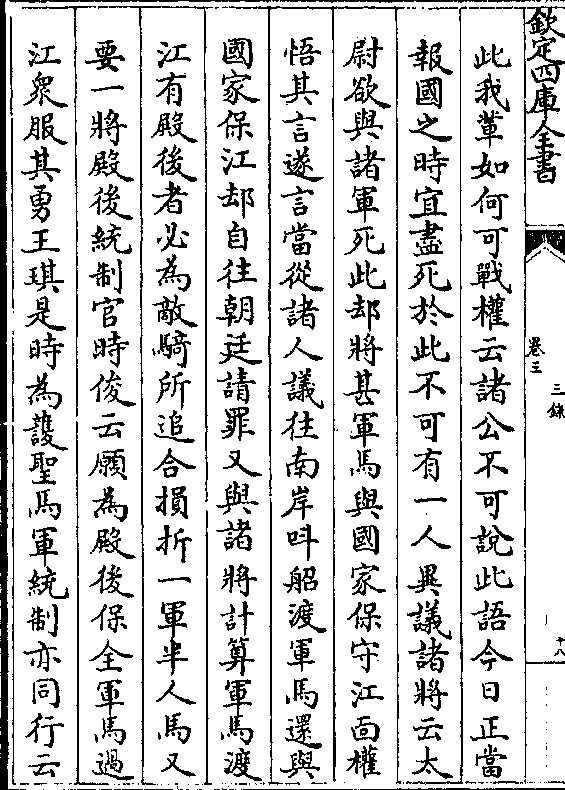 欽定四庫全書
卷三
三錄
十八
此我軰如何可戰權云諸公不可說此語今日正當
報國之時宜盡死於此不可有一人異議諸將云太
尉欲與諸軍死此却將甚軍馬與國家保守江面權
悟其言遂言當從諸人議往南岸呌船渡軍馬還與
國家保江却自往朝廷請罪又與諸將計算軍馬渡
江有殿後者必為敵騎所追合損折一軍半人馬又
要一將殿後統制官時俊云願為殿後保全軍馬過
江衆服其勇王琪是時為護聖馬軍統制亦同行云